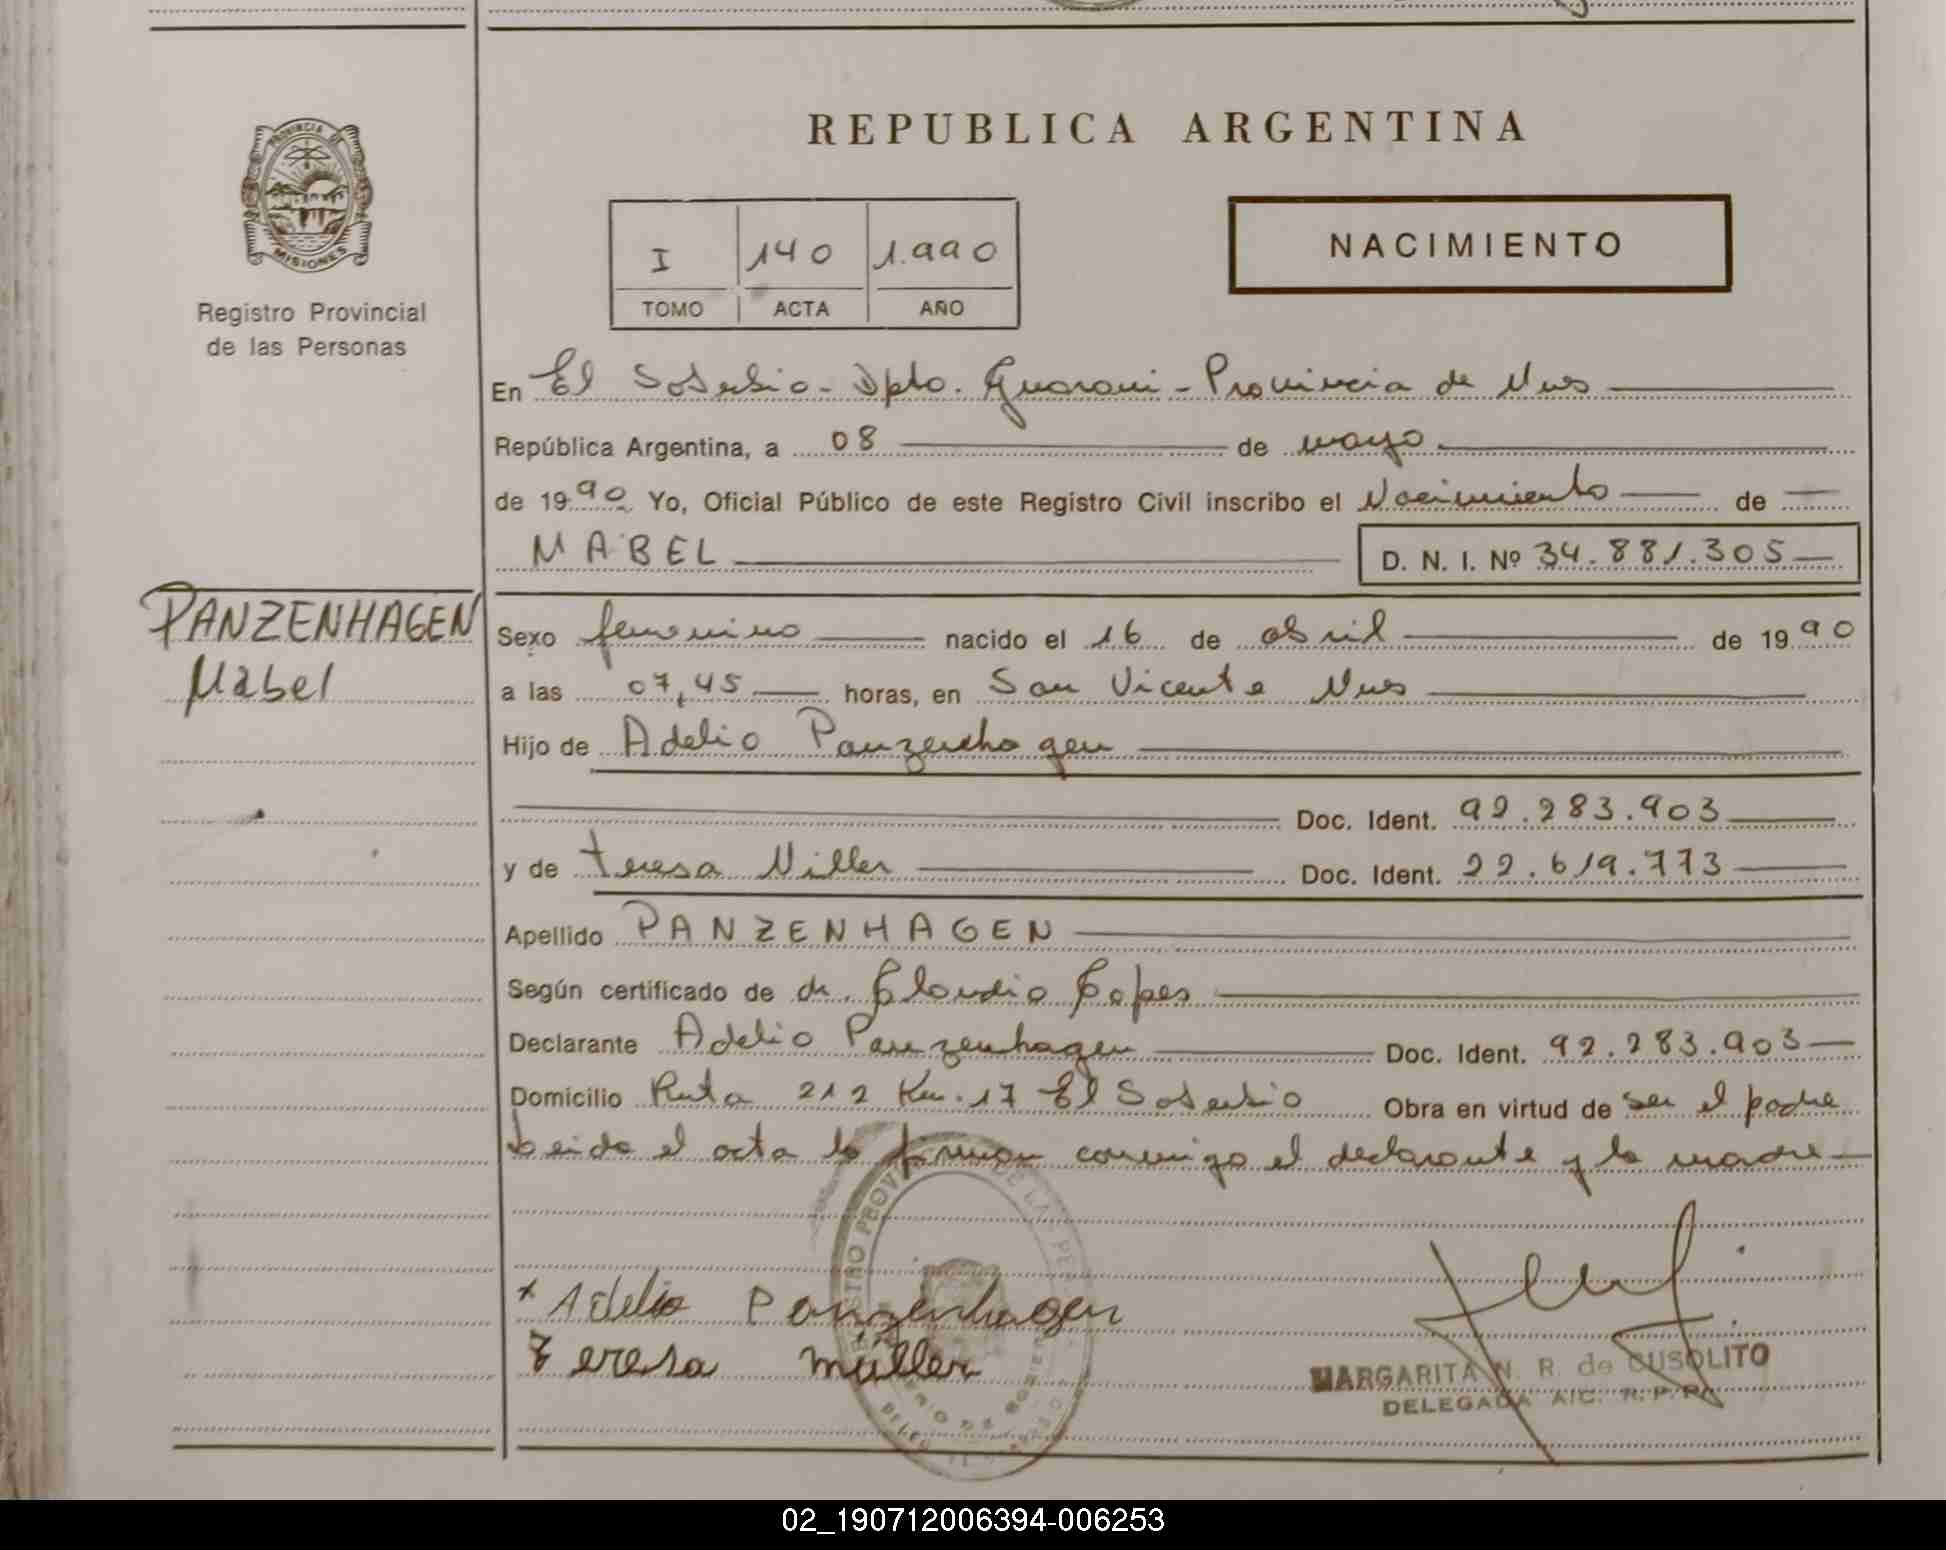 REPUBLICA ARGENTINA
PROVINCIA DE
MISIONES
Registro Provincial
de las Personas
I 140 1.990
TOMO ACTA AÑO
NACIMIENTO
En El Soberbio - Dpto. Guarani - Provincia de Mnes
República Argentina, a 08 de mayo
de 1990 Yo, Oficial Público de este Registro Civil inscribo el Nacimiento de
MABEL D. N. I. Nº 34.881.305
PANZENHAGEN
Mabel
Sexo femenino nacido el 16 de abril de 1990
a las 07,45 horas, en San Vicente Mnes
Hijo de Adelio Panzenhagen
Doc. Ident. 92.283.903
y de Teresa Miller Doc. Ident. 22.619.773
Apellido PANZENHAGEN
Según certificado de dr. Claudio Lopes
Declarante Adelio Panzenhagen Doc. Ident. 92.283.903
Domicilio Ruta 212 Km. 17 El Soberbio Obra en virtud de ser el padre
Leida el acta la firman conmigo el declarante y la madre
x Adelio Panzenhagen
Teresa müller
MARGARITA N. R. de CUSOLITO
DELEGADA
02_190712006394-006253